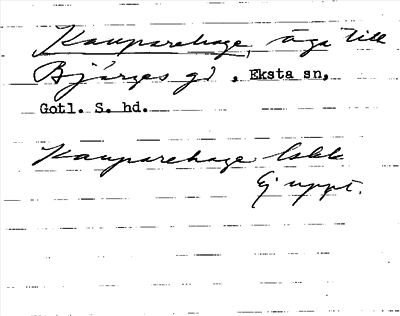 Kauparehage, äga till
Bjärges gd, Eksta sn,
Gotl. S. hd.
Kauparehage
Ej uppt.